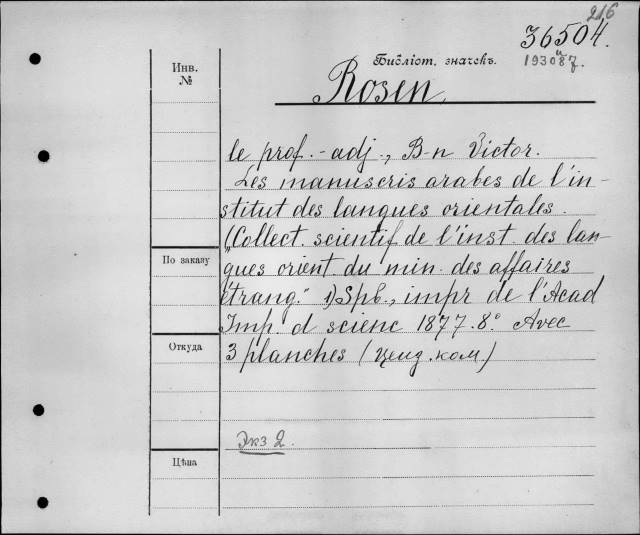 216
36504.
и
19308 7.
Библіот. значекъ.
Инв.
№
Rosen,
le prof.-adj., B-n Victor.
Les manuscris arabes de l'in-
stitut des langues orientales.
("Collect. scientif de l'inst. des lan-
gues orient. du min. des affaires
étrang." 1) Spb., impr de l'Acad
Imp. d scienc 1877. 8°. Avec
3 planches (ценд. ком)
По заказу
Откуда
Экз 2.
Цѣна